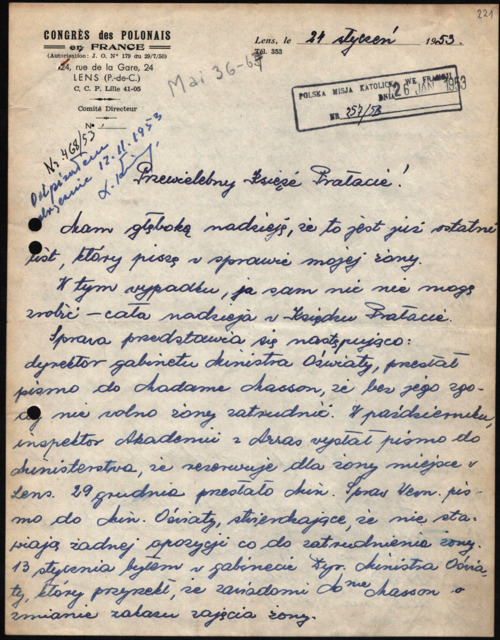 221
CONGRÈS des POLONAIS
en FRANCE
(Autorisation: J. O. N° 179 du 29/7/50)
24, rue de la Gare, 24
LENS (P.-de-C.)
C. C. P. Lille 41-05
Comité Directeur
N°
Lens, le 24 styczeń 1953.
Tél. 353
Mai 36-67
POLSKA MISJA KATOLICKA WE FRANCJI
DNIA 26 JAN 1953
NR. 257/53
Nr 468/53
Odpisałem
12.II.1953
Przewielebny Księże Prałacie!
Mam głęboką nadzieję, że to jest już ostatni
list, który piszę w sprawie mojej żony.
W tym wypadku, ja sam nic nie mogę
zrobić – cała nadzieja w Księdzu Prałacie.
Sprawa przedstawia się następująco:
dyrektor gabinetu Ministra Oświaty, przesłał
pismo do Madame Masson, że bez jego zgo-
dy nie wolno żony zatrudnić. W październiku,
inspektor Akademii z Arras wysłał pismo do
Ministerstwa, że rezerwuje dla żony miejsce w
Lens. 29 grudnia przesłało Min. Spraw Wewn. pis-
mo do Min. Oświaty, stwierdzające, że nie sta-
wiają żadnej opozycji co do zatrudnienia żony.
13 stycznia byłem w gabinecie Dyr. Ministra Oświa-
ty, który przyrzekł, że zawiadomi Mme Masson o
zmianie zakazu zajęcia żony.